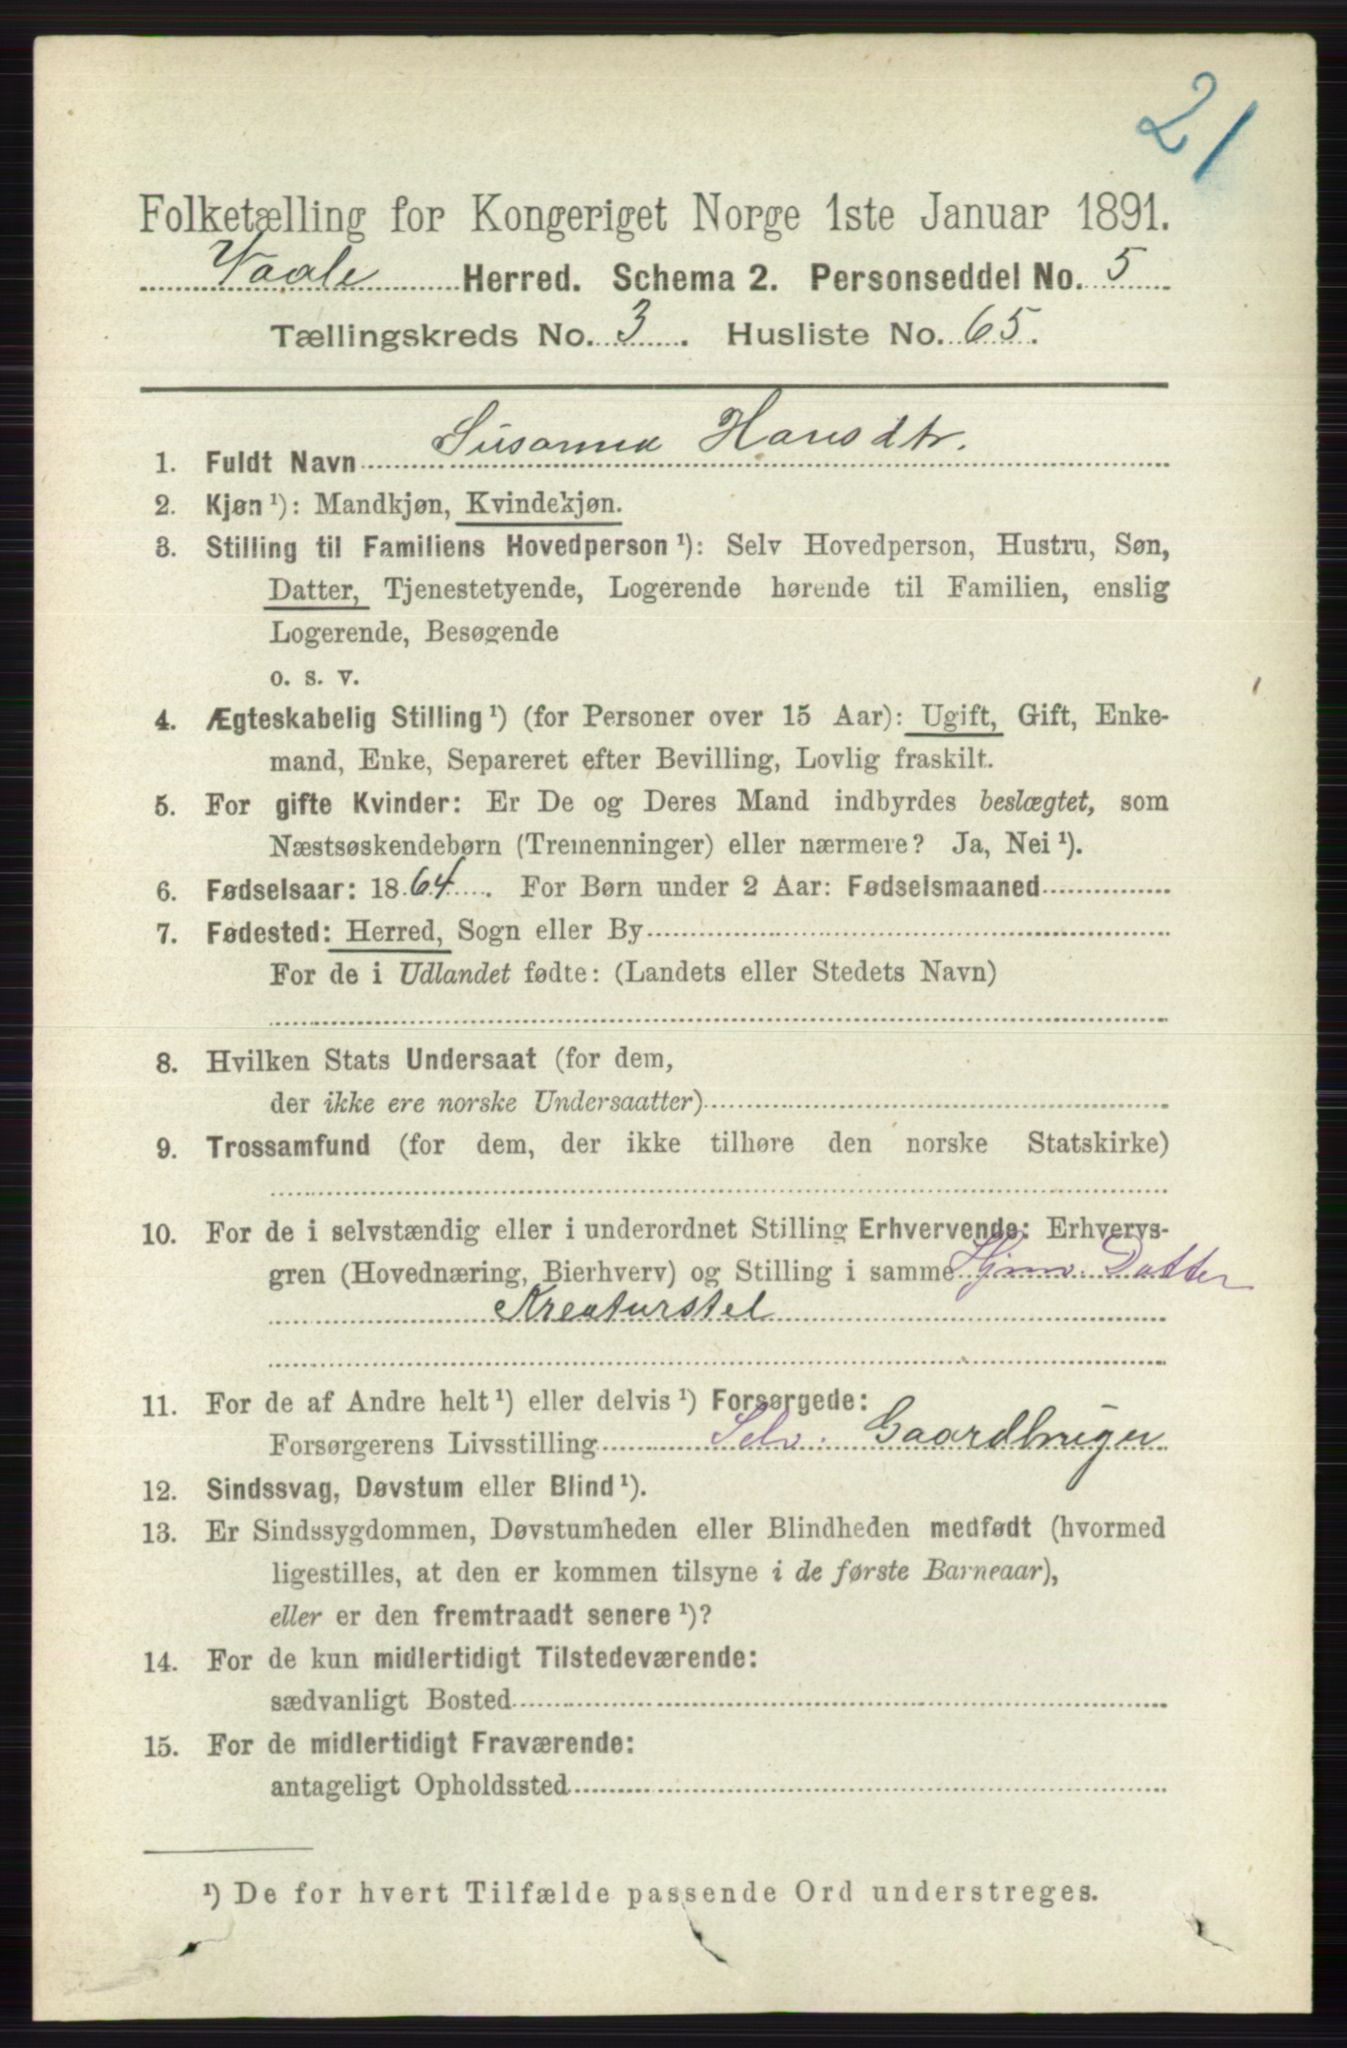 21
Folketælling for Kongeriget Norge 1ste Januar 1891.
Vaale Herred. Schema 2. Personseddel No. 5
Tællingskreds No. 3. Husliste No. 65.
1. Fuldt Navn Susanna Hansdtr.
2. Kjøn ¹): Mandkjøn, Kvindekjøn.
3. Stilling til Familiens Hovedperson ¹): Selv Hovedperson, Hustru, Søn,
Datter, Tjenestetyende, Logerende hørende til Familien, enslig
Logerende, Besøgende
o. s. v.
4. Ægteskabelig Stilling ¹) (for Personer over 15 Aar): Ugift, Gift, Enke-
mand, Enke, Separeret efter Bevilling, Lovlig fraskilt.
5. For gifte Kvinder: Er De og Deres Mand indbyrdes beslægtet, som
Næstsøskendebørn (Tremenninger) eller nærmere? Ja, Nei ¹).
6. Fødselsaar: 1864. For Børn under 2 Aar: Fødselsmaaned
7. Fødested: Herred, Sogn eller By
For de i Udlandet fødte: (Landets eller Stedets Navn)
8. Hvilken Stats Undersaat (for dem,
der ikke ere norske Undersaatter)
9. Trossamfund (for dem, der ikke tilhøre den norske Statskirke)
10. For de i selvstændig eller i underordnet Stilling Erhvervende: Erhvervs-
gren (Hovednæring, Bierhverv) og Stilling i samme Hjmv. Datter
Kreaturstel
11. For de af Andre helt ¹) eller delvis ¹) Forsørgede:
Forsørgerens Livsstilling Selv. Gaardbruger
12. Sindssvag, Døvstum eller Blind ¹).
13. Er Sindssygdommen, Døvstumheden eller Blindheden medfødt (hvormed
ligestilles, at den er kommen tilsyne i de første Barneaar),
eller er den fremtraadt senere ¹)?
14. For de kun midlertidigt Tilstedeværende:
sædvanligt Bosted
15. For de midlertidigt Fraværende:
antageligt Opholdssted
¹) De for hvert Tilfælde passende Ord understreges.